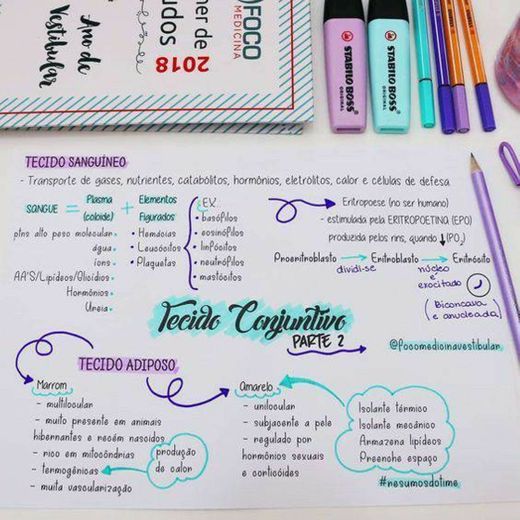 FOCO
MEDICINA
ner de
udos
2018
Ano de
Vestibular
STABILO BOSS
ORIGINAL
STABILO BOSS
ORIGINAL
TECIDO SANGUÍNEO
- Transporte de gases, nutrientes, catabólitos, hormônios, eletrólitos, calor e células de defesa
SANGUE = Plasma (coloide) + Elementos Figurados
ptns alto peso molecular
água
íons
AA'S/Lipídeos/Glicídios
Hormônios
Ureia
• Hemácias
• Leucócitos
• Plaquetas
EX.:
• basófilos
• eosinófilos
• linfócitos
• neutrófilos
• mastócitos
Eritropoese (no ser humano)
- estimulada pela ERITROPOETINA (EPO)
produzida pelos rins, quando ↓(PO₂)
Proeritroblasto → Eritroblasto → Eritrócito
dividi-se
núcleo
é
exocitado
(Bicôncava
e anucleada)
Tecido Conjuntivo
PARTE 2
@focomedicinavestibular
TECIDO ADIPOSO
Marrom
- multilocular
- muito presente em animais
hibernantes e recém nascidos
- rico em mitocôndrias
- termogênicas
- muita vascularização
produção
de calor
Amarelo
- unilocular
- subjacente a pele
- regulado por
hormônios sexuais
e corticóides
Isolante térmico
Isolante mecânico
Armazena lipídeos
Preenche espaço
#resumosdotime